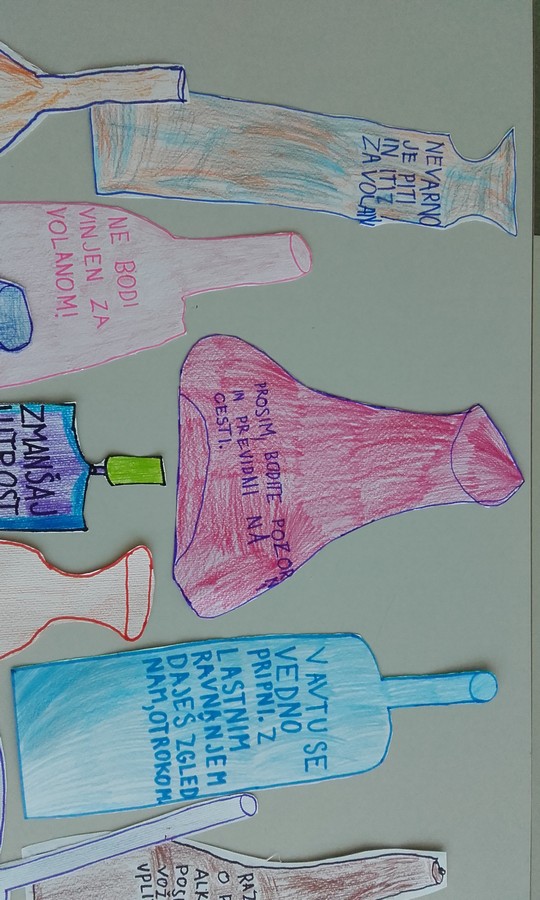 NEVARNO
JE PITI
IN ITI Z
ZA VOLAN
NE BODI
VINJEN ZA
VOLANOM!
PROSIM, BODITE POZOR
NI
IN PREVIDNI NA
CESTI.
ZMANŠAJ
HITROST
V AVTU SE
VEDNO
PRIPNI. Z
LASTNIM
RAVNANJEM
DAJEŠ ZGLED
NAM, OTROKOM
RAZ
O P
ALK
POS
VOŽ
VPLI